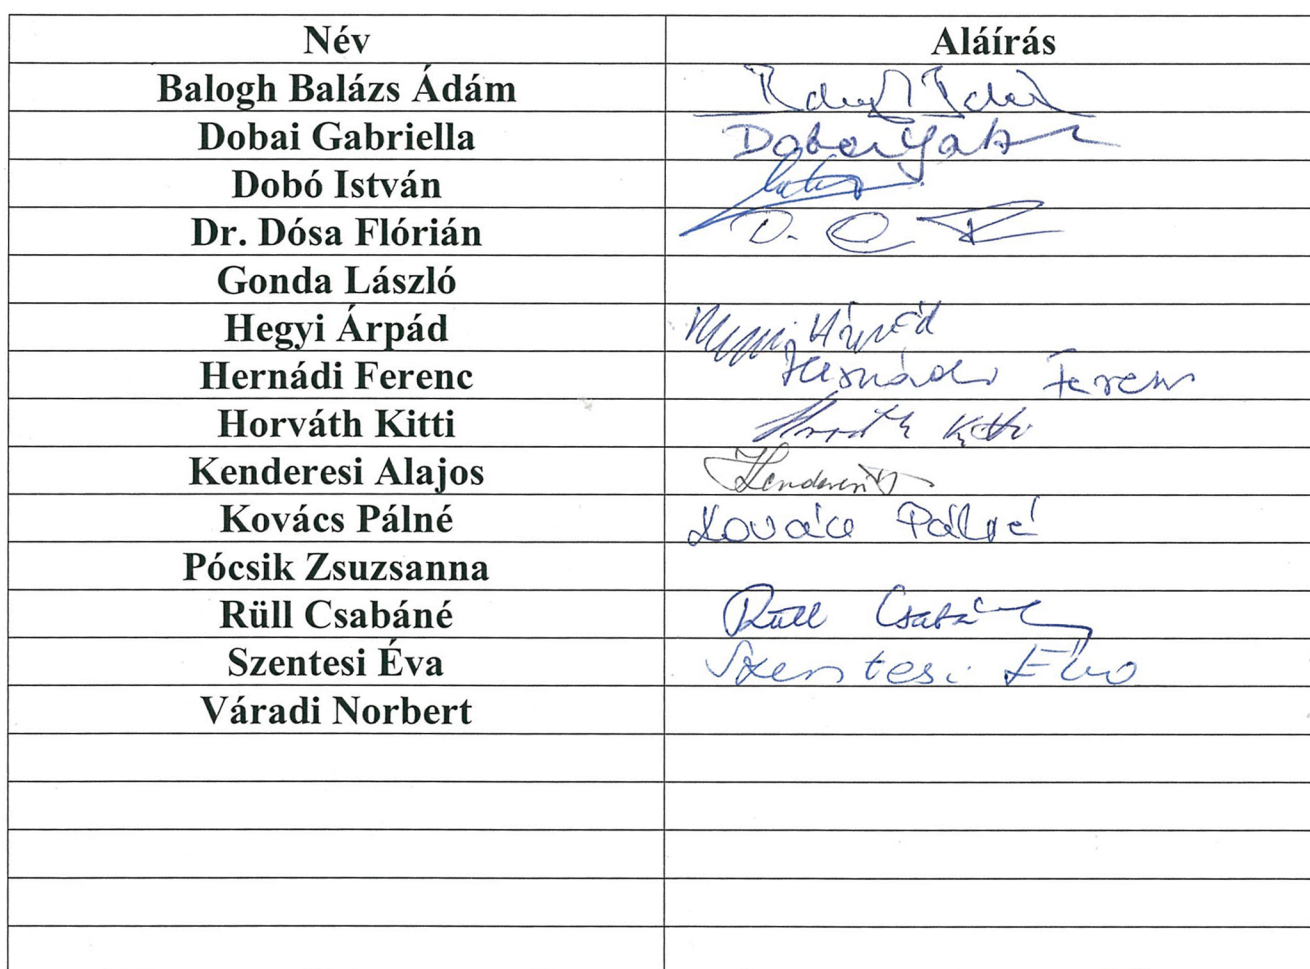 Név Aláírás
Balogh Balázs Ádám
Dobai Gabriella
Dobó István
Dr. Dósa Flórián D.
Gonda László
Hegyi Árpád Árpád
Hernádi Ferenc Hernádi Ferenc
Horváth Kitti Horváth Kitti
Kenderesi Alajos Kenderesi
Kovács Pálné Kovács Pálné
Pócsik Zsuzsanna
Rüll Csabáné Rüll Csabáné
Szentesi Éva Szentesi Éva
Váradi Norbert